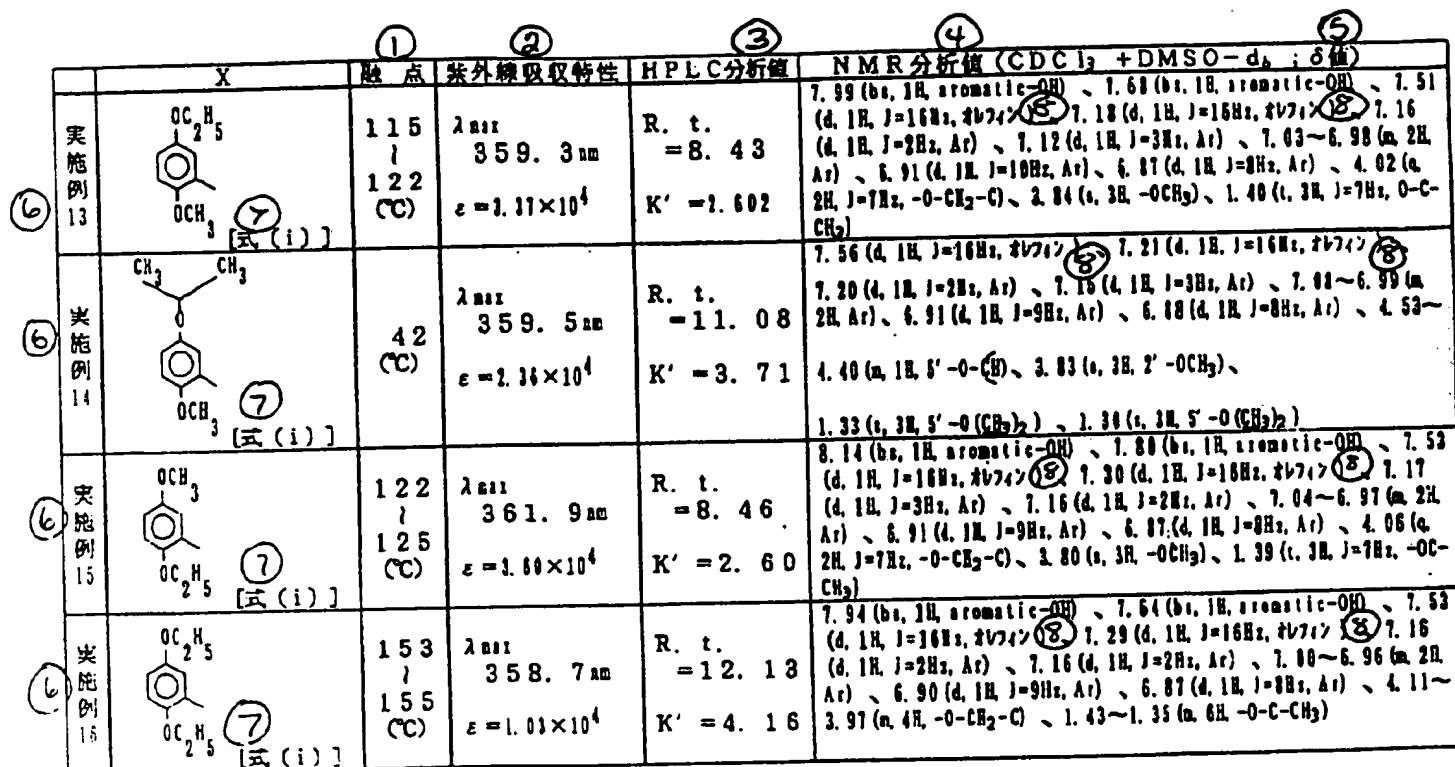 ① ② ③ ④ ⑤
X 融 点 紫外線吸収特性 HPLC分析値 NMR分析値 (CDCl3 +DMSO-d6 ; δ値)
⑥ 実施例13
OC2H5
OCH3 ⑦
[式 (i) ]
115
~
122
(℃)
λmax
359. 3nm
R. t.
=8. 43
K' =2.602
7. 99 (bs, 1H, aromatic-OH) 、 7. 68 (bs, 1H, aromatic-OH) 、 7. 51
(d, 1H, J=16Hz, オレフィン ⑧ 7. 18 (d, 1H, J=16Hz, オレフィン ⑧ 7. 16
(d, 1H, J=2Hz, Ar) 、 7. 12 (d, 1H, J=3Hz, Ar) 、 7. 03~6. 98 (m, 2H,
Ar) 、 6. 91 (d, 1H, J=10Hz, Ar) 、 6. 87 (d, 1H, J=8Hz, Ar) 、 4. 02 (q,
2H, J=7Hz, -O-CH2-C) 、 3. 84 (s, 3H, -OCH3) 、 1. 40 (t, 3H, J=7Hz, O-C-
CH3)
⑥ 実施例14
CH3 CH3
O
OCH3 ⑦
[式 (i) ]
42
(℃)
λmax
359. 5nm
ε =2. 36×10⁴
R. t.
=11. 08
K' =3. 71
7. 56 (d, 1H, J=16Hz, オレフィン ⑧ 、 7. 21 (d, 1H, J=16Hz, オレフィン ⑧
7. 20 (d, 1H, J=2Hz, Ar) 、 7. 15 (d, 1H, J=3Hz, Ar) 、 6. 99 (m,
2H, Ar) 、 6. 91 (d, 1H, J=9Hz, Ar) 、 6. 88 (d, 1H, J=8Hz, Ar) 、 4. 53~
4. 40 (m, 1H, 5' -O-CH) 、 3. 83 (s, 3H, 2' -OCH3) 、
1. 33 (s, 3H, 5' -O (CH3)2 ) 、 (s, 3H, 5' -O (CH3)2 )
⑥ 実施例15
OCH3
OC2H5 ⑦
[式 (i) ]
122
~
125
(℃)
λmax
361. 9nm
ε =3. 60×10⁴
R. t.
=8. 46
K' =2. 60
8. 14 (bs, 1H, aromatic-OH) 、 7. 80 (bs, 1H, aromatic-OH) 、 7. 53
(d, 1H, J=16Hz, オレフィン ⑧ 7. 30 (d, 1H, J=16Hz, オレフィン ⑧ 7. 17
(d, 1H, J=3Hz, Ar) 、 7. 16 (d, 1H, J=2Hz, Ar) 、 7. 04~6. 97 (m, 2H,
Ar) 、 6. 91 (d, 1H, J=9Hz, Ar) 、 6. 87 (d, 1H, J=8Hz, Ar) 、 4. 06 (q,
2H, J=7Hz, -O-CH2-C) 、 3. 80 (s, 3H, -OCH3) 、 1. 39 (t, 3H, J=7Hz, -OC-
CH3)
⑥ 実施例16
OC2H5
OC2H5 ⑦
[式 (i) ]
153
~
155
(℃)
λmax
358. 7nm
ε =1. 03×10⁴
R. t.
=12. 13
K' =4. 16
7. 94 (bs, 1H, aromatic-OH) 、 7. 64 (bs, 1H, aromatic-OH) 、 7. 53
(d, 1H, J=16Hz, オレフィン ⑧ 7. 29 (d, 1H, J=16Hz, オレフィン ⑧ 7. 16
(d, 1H, J=2Hz, Ar) 、 7. 16 (d, 1H, J=2Hz, Ar) 、 7. 00~6. 96 (m, 2H,
Ar) 、 6. 90 (d, 1H, J=9Hz, Ar) 、 6. 87 (d, 1H, J=8Hz, Ar) 、 4. 11~
3. 97 (m, 4H, -O-CH2-C) 、 1. 43~1. 35 (m, 6H, -O-C-CH3)